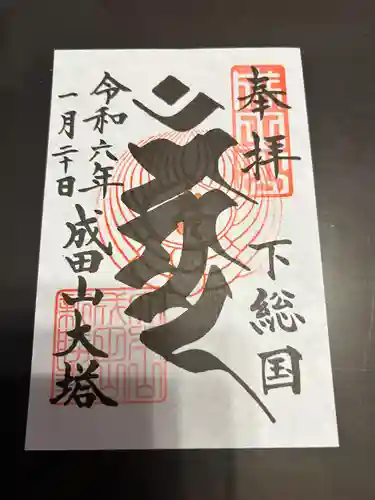 奉拝
下総国
成田山大塔
令和六年
一月二十日